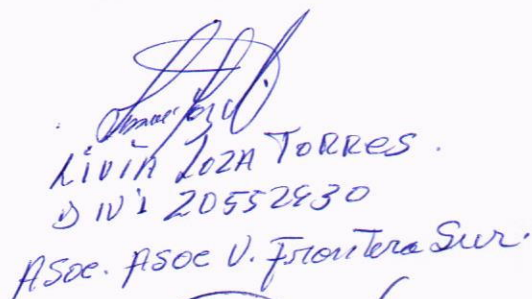 LIVIA LOZA TORRES.
DNI 20552930
ASOC. ASOC V. Frontera Sur.